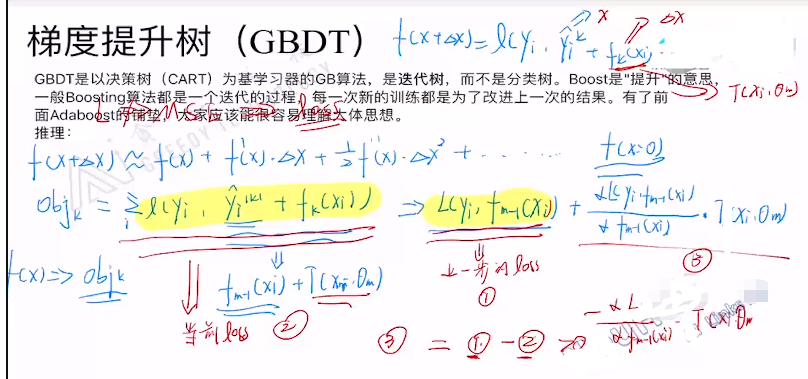 梯度提升树（GBDT）
f(x+Δx)=l(yi, ŷi + fk(xi)
x
Δx
GBDT是以决策树（CART）为基学习器的GB算法，是迭代树，而不是分类树。Boost是"提升"的意思，
一般Boosting算法都是一个迭代的过程，每一次新的训练都是为了改进上一次的结果。有了前
T(xi·θm)
面Adaboost的铺垫，大家应该能很容易理解大体思想。
L → MSE → loss
推理：
f(x+Δx) ≈ f(x) + f'(x)·Δx + ½f''(x)·Δx² + ······
f(x=0)
objk = Σi l(yi, ŷi^(k-1) + fk(xi)) ⇒ L(yi, fm-1(xi)) + αL(yi, fm-1(xi)) / αfm-1(xi) · T(xi·θm)
f(x) ⇒ objk
fm-1(xi) + T(xi·θm)
上一步的loss
①
③
当前loss
②
③ = ① - ② ⇒ -αL / αfm-1(xi) · T(xi·θm